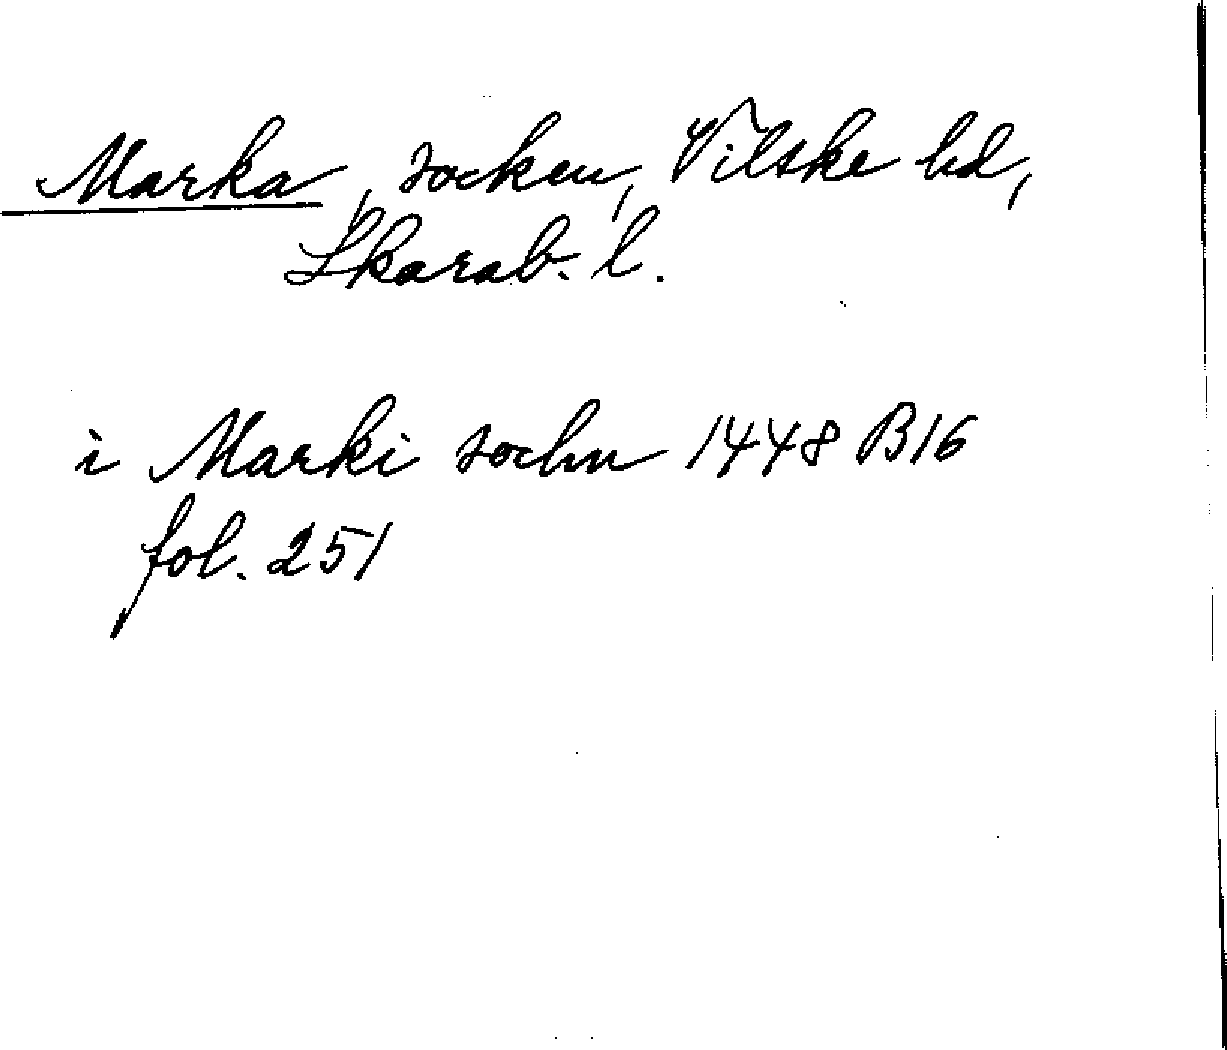 Marka, socken, Vilske hd,
Skarab. l.
i Marki sochn 1448 B16
fol. 251